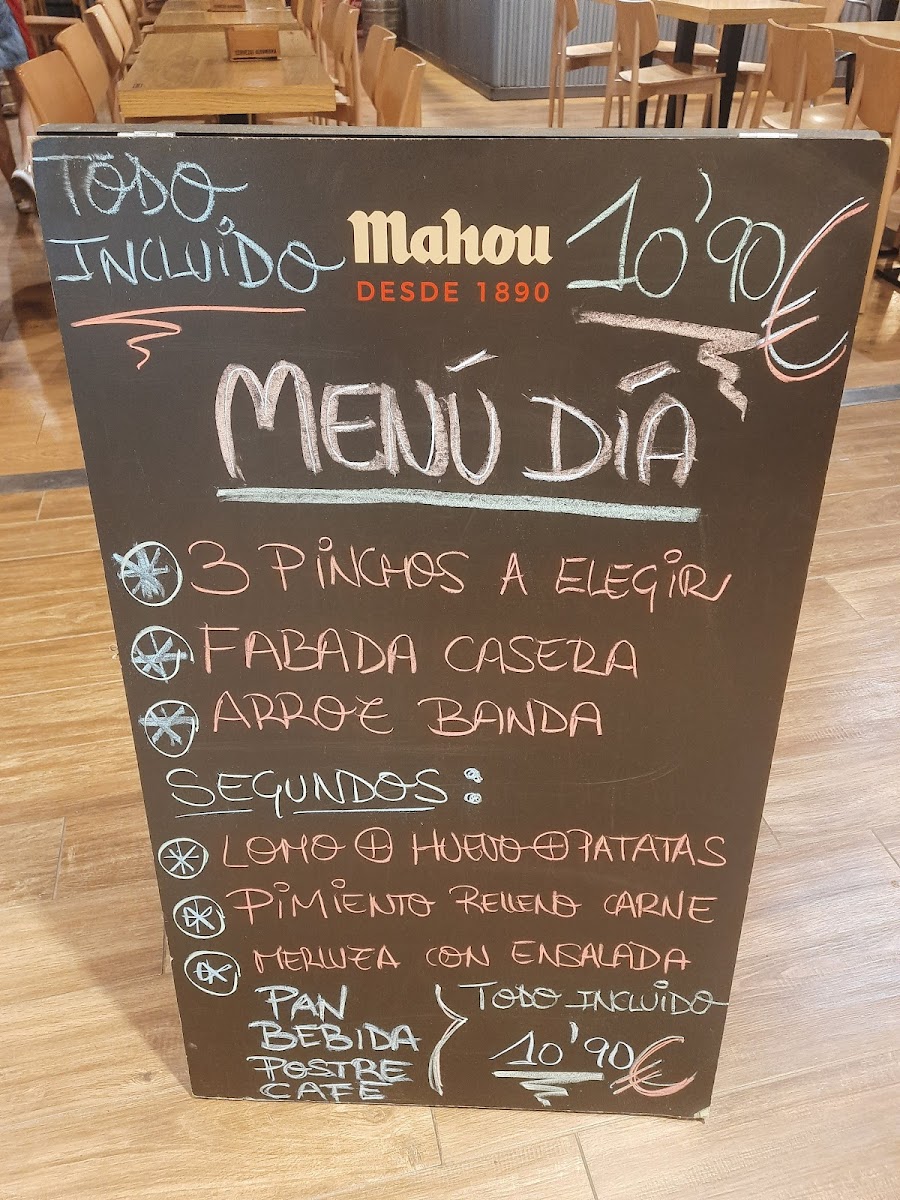 TODO
INCLUIDO
Mahou
DESDE 1890
10'90€
MENÚ DÍA
3 PINCHOS A ELEGIR
FABADA CASERA
ARROZ BANDA
SEGUNDOS:
LOMO + HUEVO + PATATAS
PIMIENTO RELLENO CARNE
MERLUZA CON ENSALADA
PAN
BEBIDA
POSTRE
CAFE
TODO INCLUIDO
10'90€